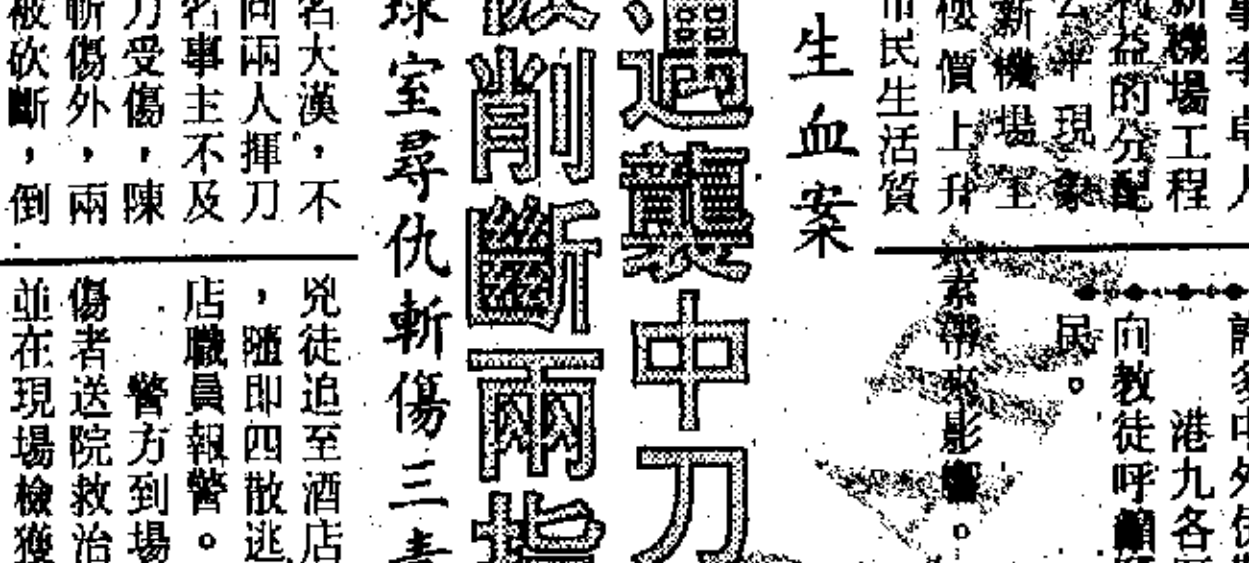 新機場工程
利益的分配
公平現象
新機場工
樓價上升
市民生活質
許多中外
港九各
向教徒呼籲
民。
素帶來影響。
生血案
遇襲中刀
被削斷兩指
球室尋仇斬傷三青
名大漢，不
同兩人揮刀
名事主不及
刀受傷，陳
斬傷外，兩
被砍斷，倒
兇徒追至酒店
，隨即四散逃
店職員報警。
警方到場
傷者送院救治
並在現場檢獲